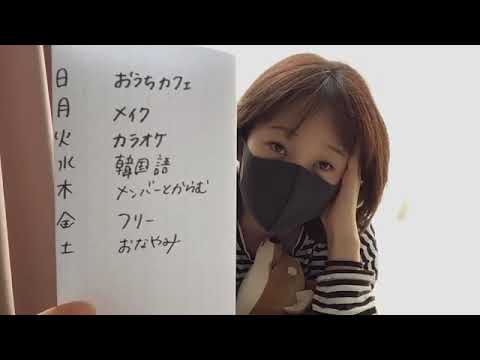 日 おうちカフェ
月 メイク
火 カラオケ
水 韓国語
木 メンバーとからむ
金 フリー
土 おなやみ